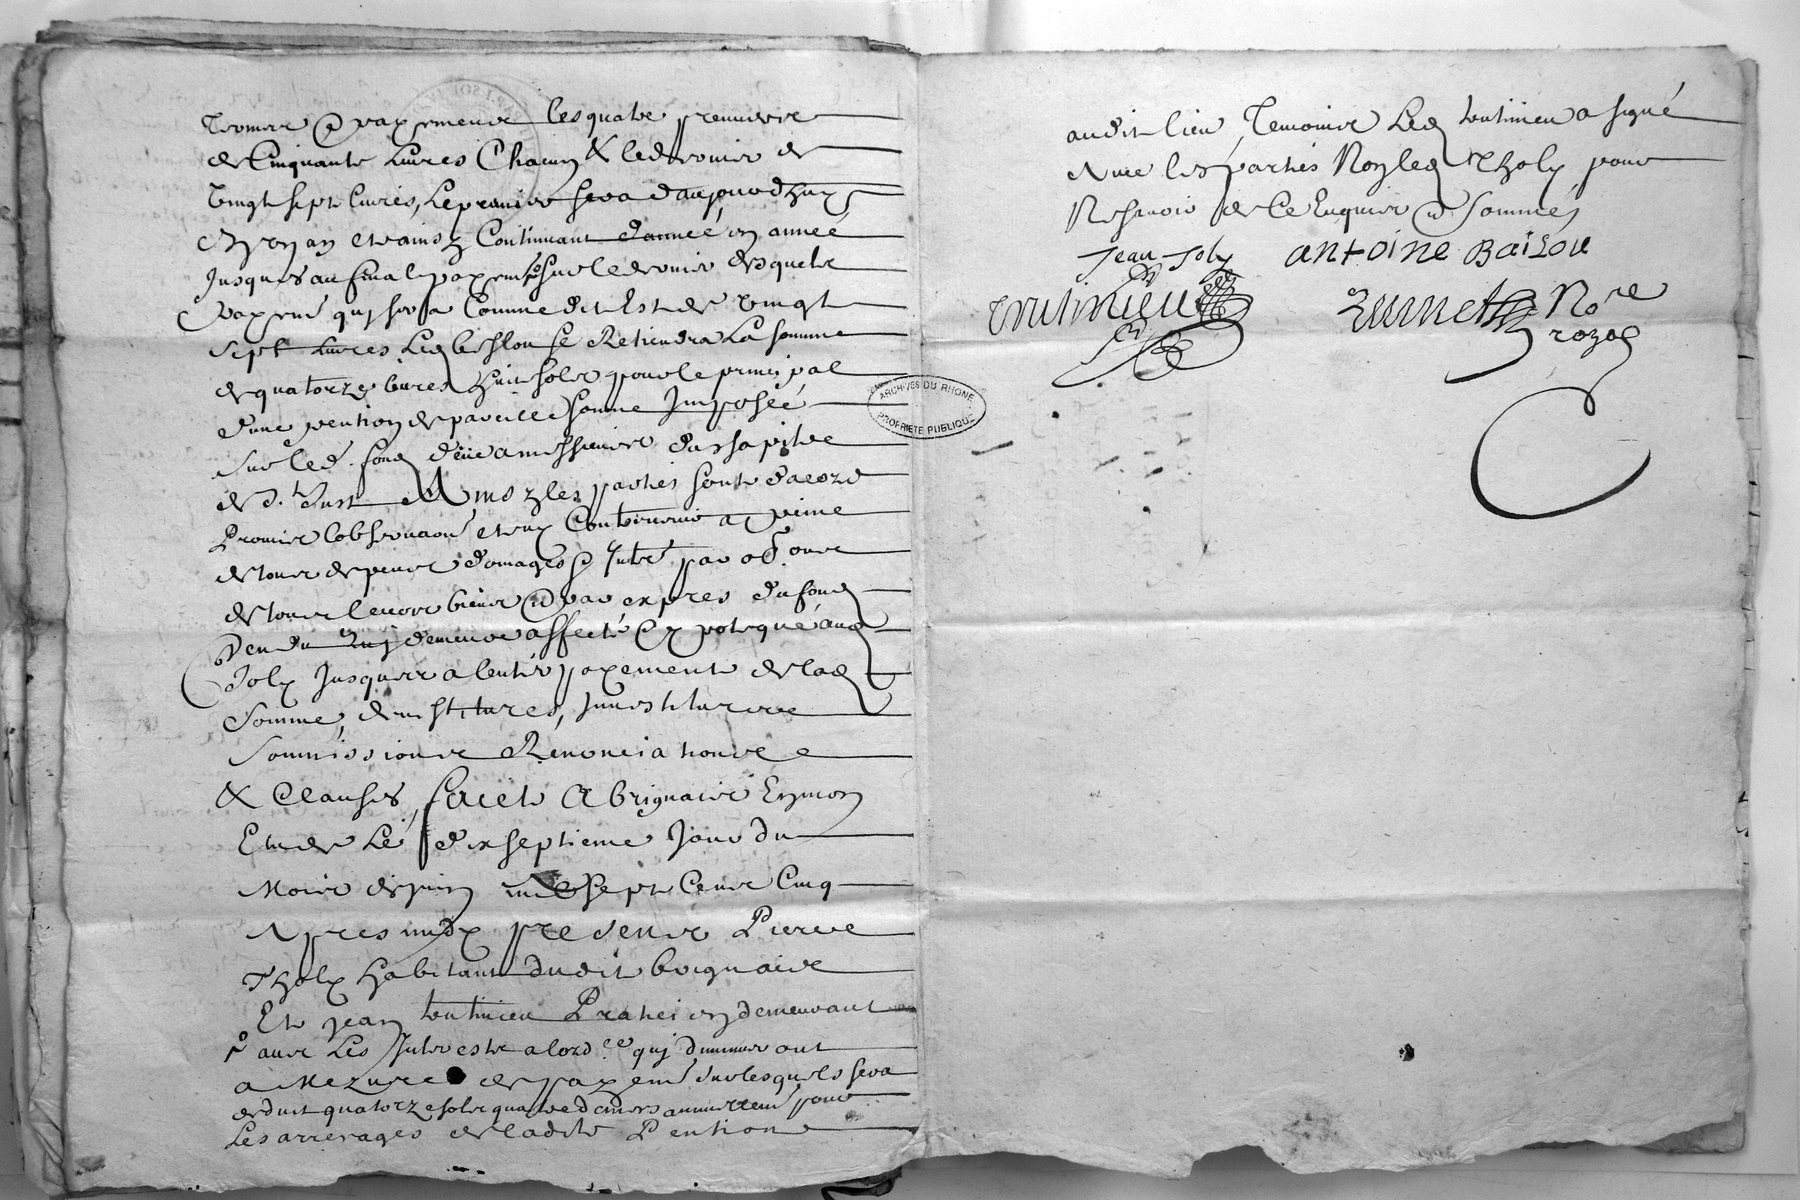 termes & payements les quatre premiers
de Cinquante Livres Chacun & le dernier de
Vingt sept livres, Le premier sera d'aujourdhuy
En un an et ainsy Continuant d'année en année
Jusques au final payem.t sur le dernier desquels
payemt quy sera Comme dit Est de vingt
sept Livres Led Se Retiendra La somme
de quatorze livres huit sols pour le principal
d'une pention de pareille somme Imposée
sur led. fond d'eüe a messieurs du chapitre
de St Just & Ainsy les parties sont d'acord
Promis l'observaon et n'y Contrevenir a peine
de tous despens domages & Intrts par
de tous leurs biens & par expres du fond
Vendu quy demeure affecté & ypotequé aud
Joly Jusques a l'entier payement de lad
Somme,
Soumissions Renonciations
& Clauses, faict A brignais
Etude Le dixseptieme Jour du
Mois de juin mil Sept Cens Cinq
Apres midy presents Pierre
Tholy habitant dudit brignais
Et jean toutinieu Praticien demeurant
avec Les Interests alord.re quy diminueront
a Mezure des payemt sur lesquels sera
deduit quatorze sols quatre deniers annuellemt pour
Les arrerages de ladite Pention
audit lieu Temoins Led toutinieu a signé
Avec les parties Non led Tholy pour
Ne scavoir de Ce Enquis & Sommés
Jean Joly antoine Baizou
toutinieu No.re
rozal
ARCHIVES DU RHONE
PROPRIETE PUBLIQUE